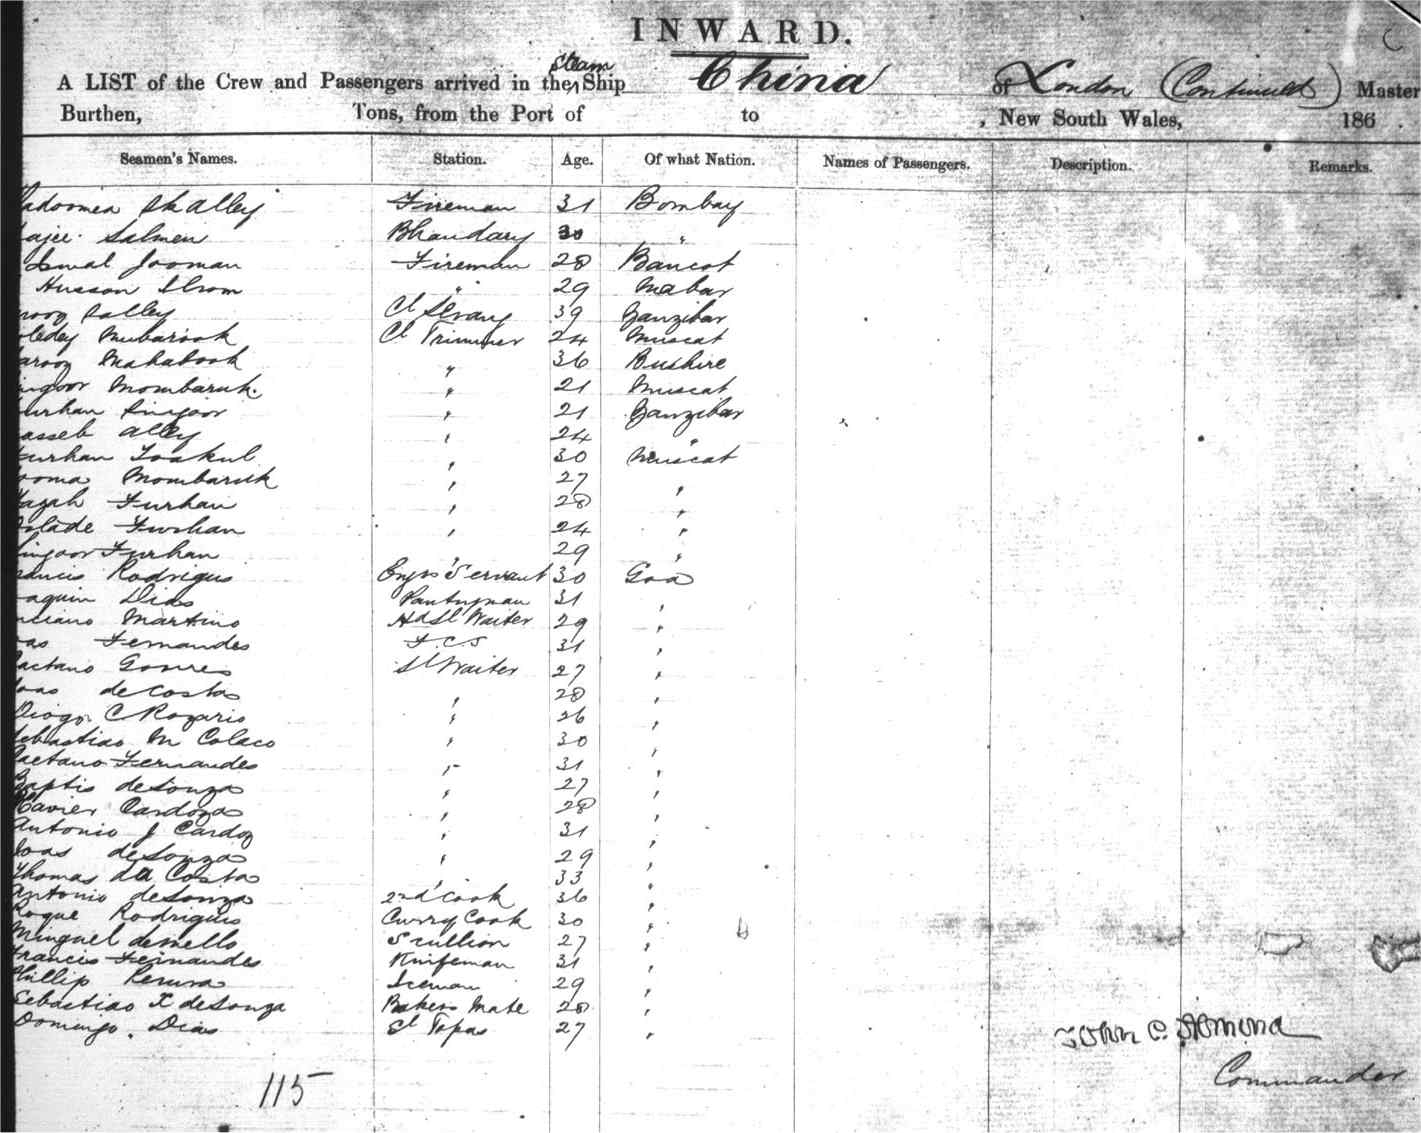 INWARD.
Steam
A LIST of the Crew and Passengers arrived in the Ship China of London (Continued) Master
Burthen, Tons, from the Port of to , New South Wales, 186 .
Seamen's Names. Station. Age. Of what Nation. Names of Passengers. Description. Remarks.
Alley Fireman 31 Bombay
Salmen Bhandary 30 "
Jooman Fireman 28 Bancot
Husson " 29 Mabar
Cl Serang 39 Zanzibar
Mubarook Cl Trimmer 24 Muscat
Mahabook " 36 Bushire
Mombaruk. " 21 Muscat
Furhan " 21 Zanzibar
Alley " 24 "
Furhan Toakul " 30 Muscat
Mombaruk " 27 "
Furhan " 28 "
Furhan " 24 "
Furhan " 29 "
Francis Rodrigus Engrs Servant 30 Goa
Dias Pantryman 31 "
Martino Hd Sl Waiter 29 "
Fernandes F C S 31 "
Caetano Gomes Sl Waiter 27 "
Joao de Costa " 28 "
Diogo C Rozario " 26 "
Sebastiao M Colaco " 30 "
Caetano Fernandes " 31 "
Baptis deSonza " 27 "
Xavier Cardozo " 28 "
Antonio J Cardoz " 31 "
Joas deSonza " 29 "
Thomas da Costa " 33 "
Antonio deSonza 2nd Cook 36 "
Roque Rodrigius Curry Cook 30 "
Minguel demello Scullion 27 "
Francis Fernandes Knifeman 31 "
Phillip Perura Iceman 29 "
Sebastiao X deSonza Bakers Mate 28 "
Domingo. Dias Sl Topas 27 "
John C. Almond
Commander
115